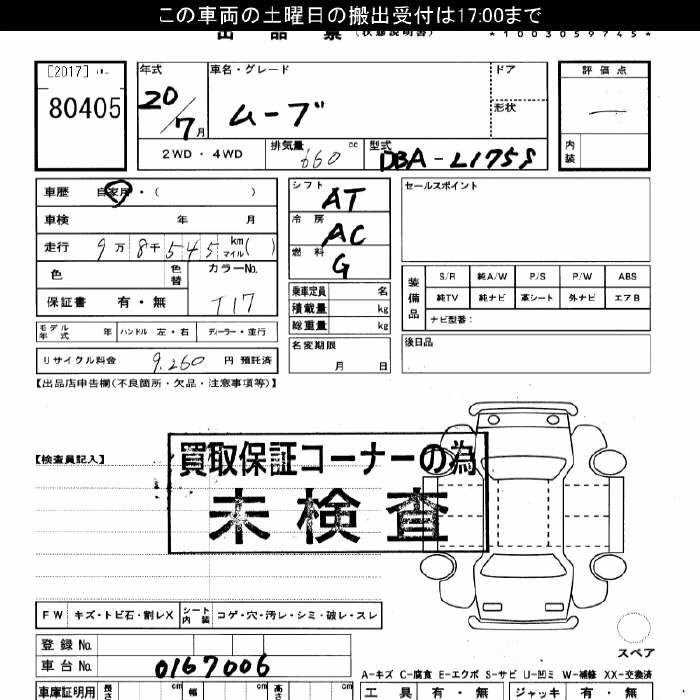 この車両の土曜日の搬出受付は17:00まで
出品票 (状態説明書) *1003059745*
[2017]
80405
年式 20/7月
車名・グレード ムーブ
ドア
形状
評価点
内装
2WD・4WD
排気量 660 cc
型式 DBA-L175S
車歴 自家用・( )
車検 年 月
走行 9万8千545 km マイル( )
色 色替 カラーNo. T17
保証書 有・無
モデル年式 年 ハンドル 左・右 ディーラー・並行
リサイクル料金 9,260 円 預託済
シフト AT
冷房 AC
燃料 G
乗車定員 名
積載量 kg
総重量 kg
名変期限 月 日
セールスポイント
装備品
S/R 純A/W P/S P/W ABS
純TV 純ナビ 革シート 外ナビ エアB
ナビ型番:
後日品
【出品店申告欄(不良箇所・欠品・注意事項等)】
【検査員記入】
買取保証コーナーの為
未検査
FW キズ・トビ石・割レX シート内装 コゲ・穴・汚レ・シミ・破レ・スレ
登録No.
車台No. 0167006
スペア
A-キズ C-腐食 E-エクボ S-サビ U-凹ミ W-補修 XX-交換済
車庫証明用 長さ cm 幅 cm 高さ cm
工具 有・無 ジャッキ 有・無